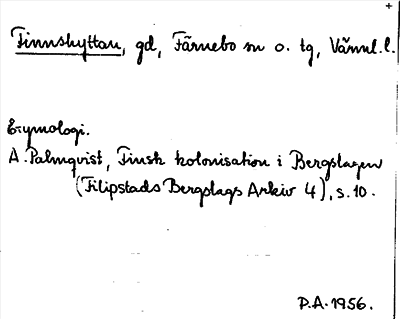 Finnshyttan, gd, Färnebo sn o. tg, Värml. l.
Etymologi.
A. Palmqvist, Finsk kolonisation i Bergslagen
(Filipstads Bergslags Arkiv 4), s. 10.
P.A. 1956.